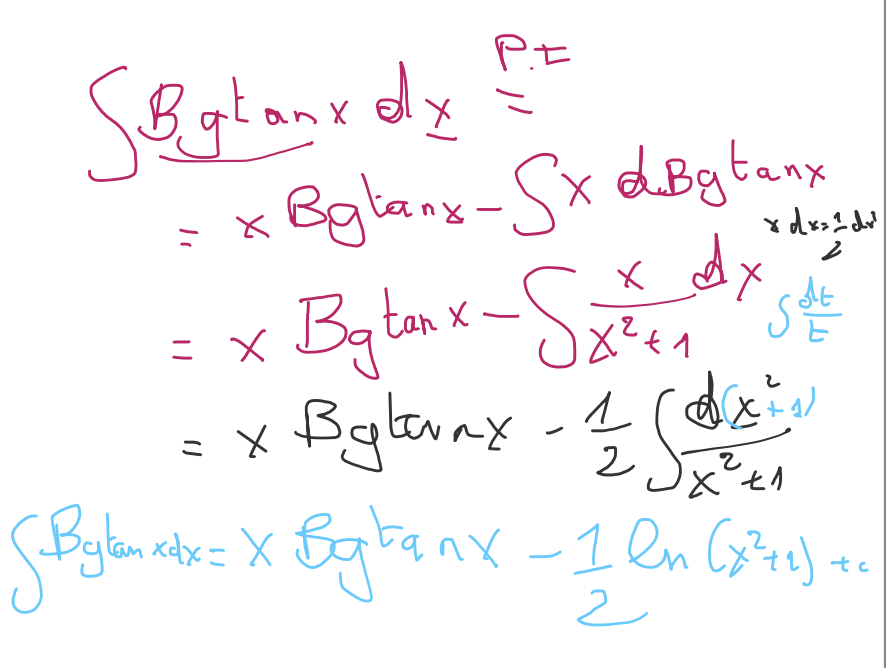 ∫ Bgtan x dx P.I =
= x Bgtan x − ∫ x d Bgtan x
x dx = 1/2 dx²
= x Bgtan x − ∫ x/(x²+1) dx
∫ dt/t
= x Bgtan x − 1/2 ∫ d(x²+1)/(x²+1)
∫ Bgtan x dx = x Bgtan x − 1/2 ln (x²+1) + c